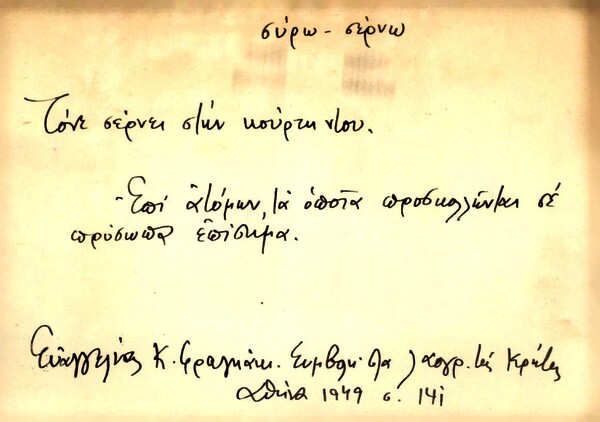 σύρω - σέρνω
Τόνε σέρνει στήν κούρτη ντου.
Ἐπί ἀτόμων, τά ὁποῖα προσκολλῶνται σέ
πρόσωπα ἐπίσημα.
Εὐαγγελίας Κ. Φραγκάκι. Συμβολή στά λαογρ. τῆς Κρήτης
Ἀθήνα 1949 σ. 141